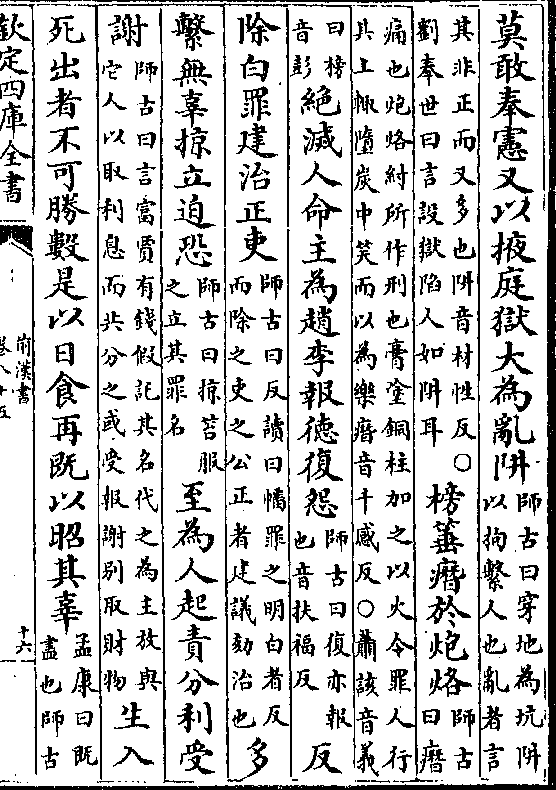 莫敢奉憲又以掖庭獄大為亂阱師古曰穿地為坑阱以拘繫人也亂者言
其非正而又多也阱音材性反○劉奉世曰言設獄陷人如阱耳榜箠㿊於炮烙師古曰㿊
痛也炮烙紂所作刑也膏塗銅柱加之以火令罪人行其上輒墮炭中笑而以為樂㿊音千感反○蕭該音義
曰榜音彭絕滅人命主為趙李報德復怨師古曰復亦報也音扶福反反
除白罪建治正吏師古曰反讀曰幡罪之明白者反而除之吏之公正者建議劾治也多
繫無辜掠立迫恐師古曰掠笞服之立其罪名至為人起責分利受
謝師古曰言富賈有錢假託其名代之為主放與它人以取利息而共分之或受報謝别取財物生入
死出者不可勝數是以日食再既以昭其辜孟康曰既盡也師古
欽定四庫全書
前漢書
卷八十五
十六